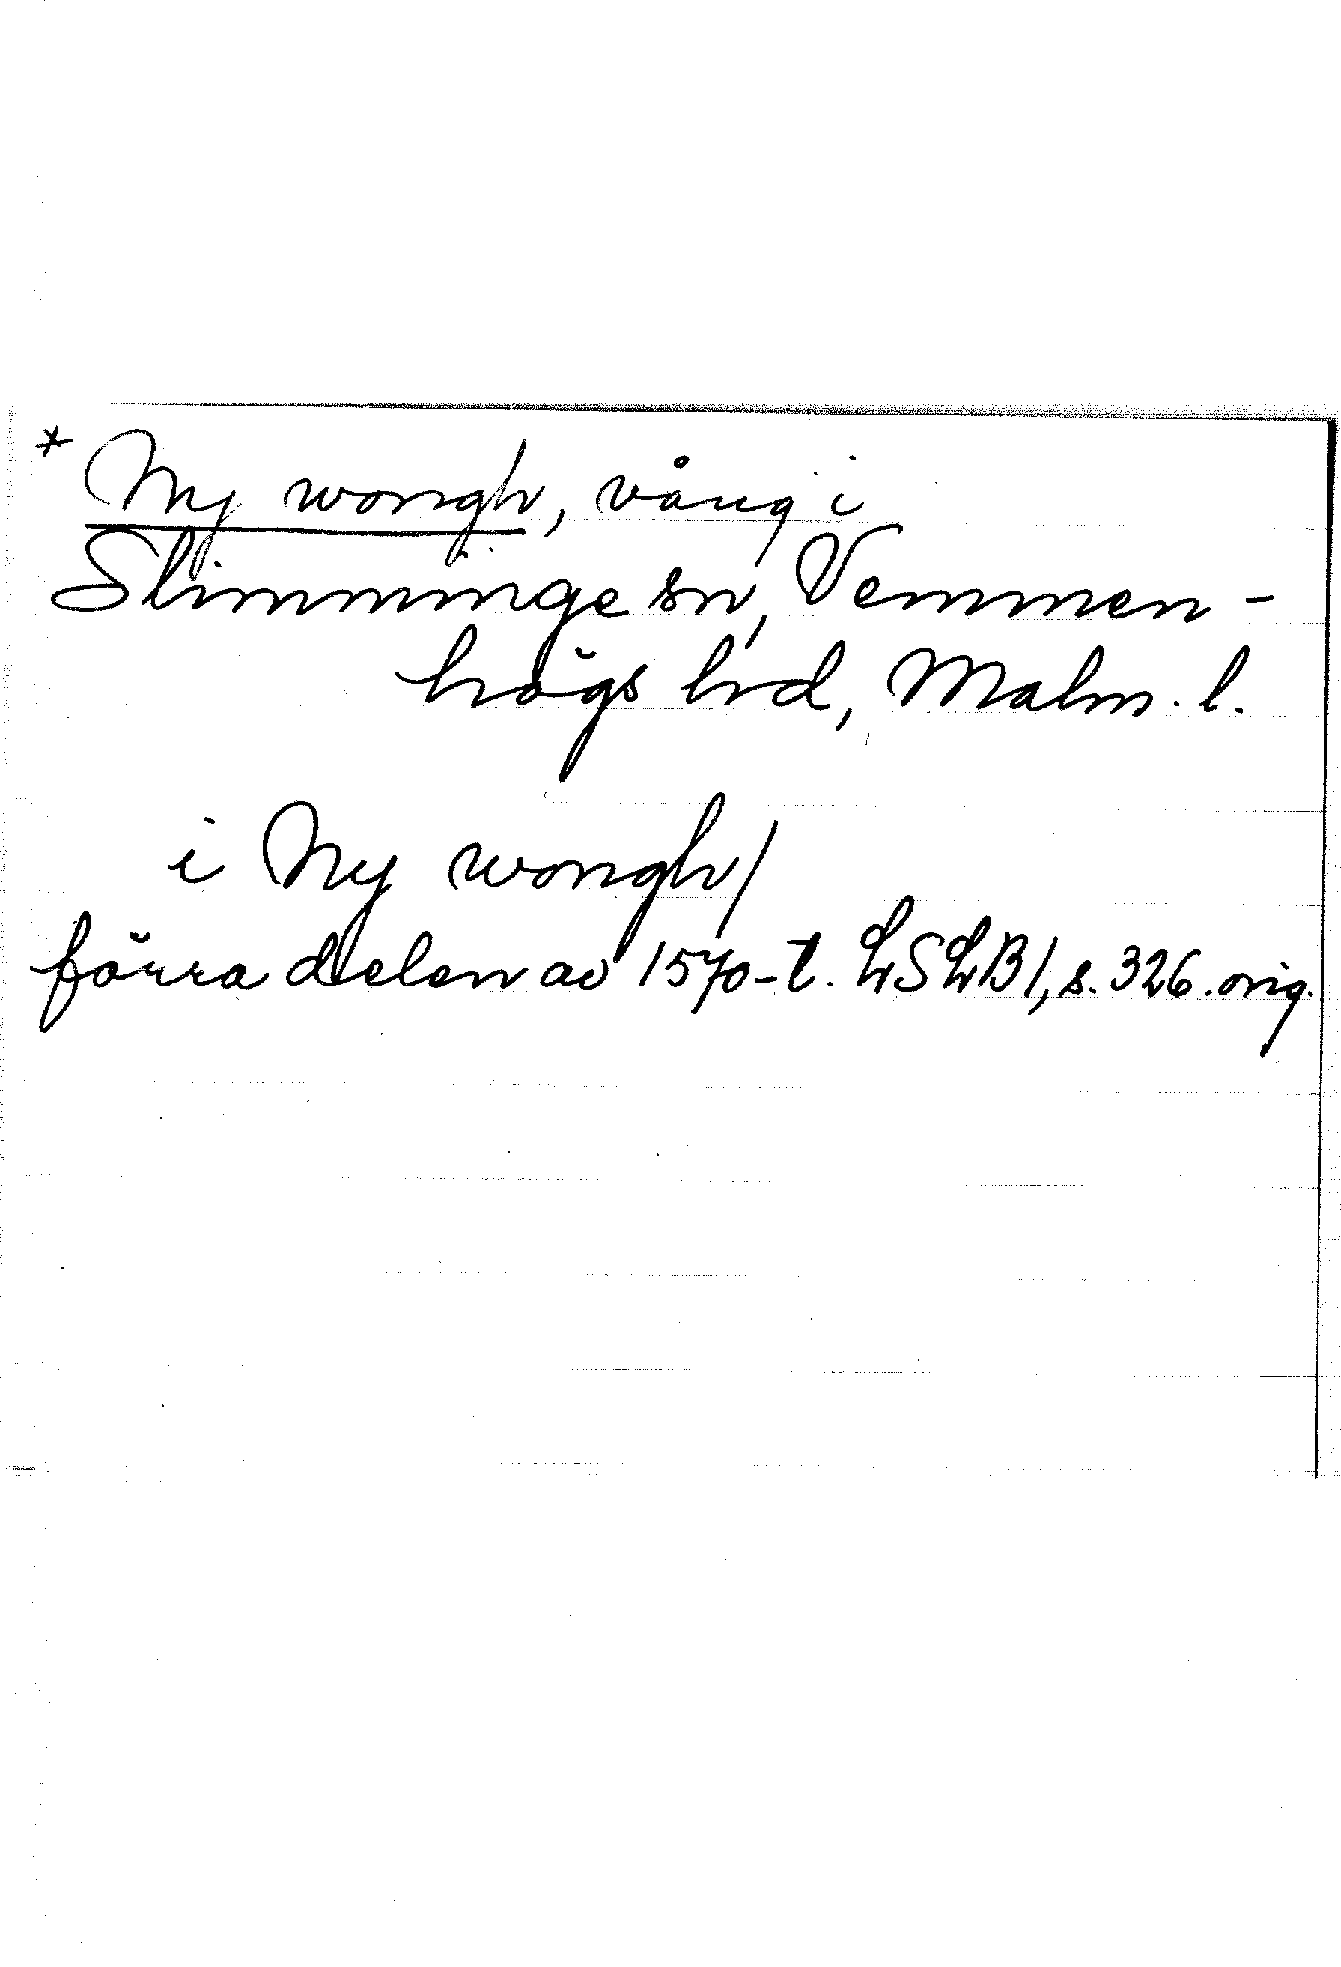 * Ny wongh, vång i
Slimminge sn, Vemmen-
högs hd, Malm. l.
i Ny wongh/
förra delen av 1570-t. LSLB1, s. 326. orig.